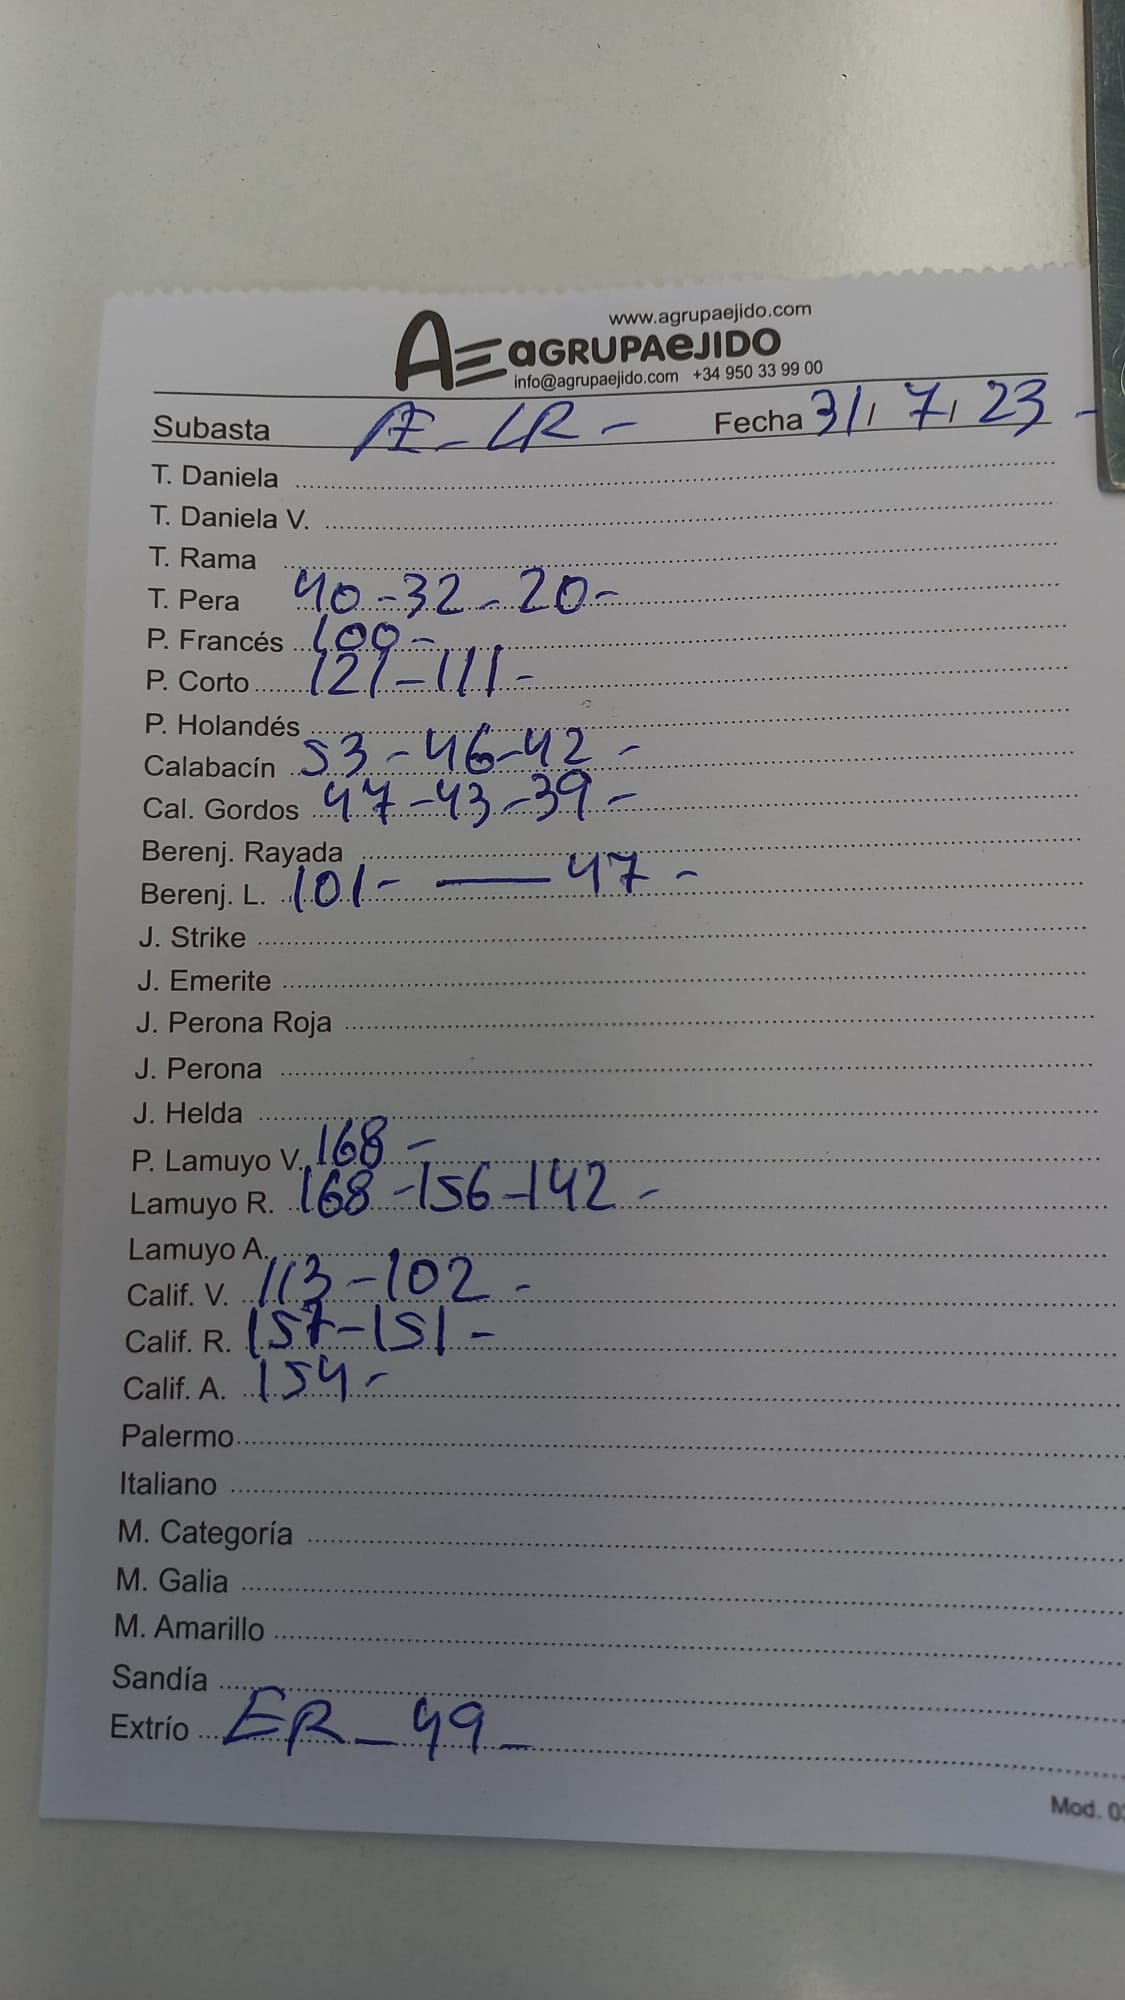 www.agrupaejido.com
AE aGRUPAeJIDO
info@agrupaejido.com +34 950 33 99 00
Subasta AE - LR - Fecha 31, 7, 23 -
T. Daniela
T. Daniela V.
T. Rama
T. Pera 40 - 32 - 20 -
P. Francés 100 -
P. Corto 121 - 111 -
P. Holandés
Calabacín 53 - 46 - 42 -
Cal. Gordos 47 - 43 - 39 -
Berenj. Rayada
Berenj. L. 101 - — 47 -
J. Strike
J. Emerite
J. Perona Roja
J. Perona
J. Helda
P. Lamuyo V. 168 -
Lamuyo R. 168 - 156 - 142 -
Lamuyo A.
Calif. V. 113 - 102 -
Calif. R. 157 - 151 -
Calif. A. 154 -
Palermo
Italiano
M. Categoría
M. Galia
M. Amarillo
Sandía
Extrío ER - 49 -
Mod.